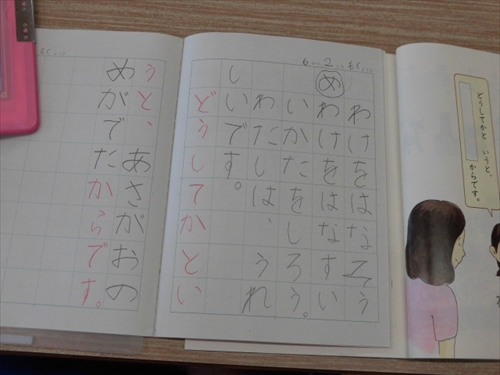 どうしてかと いうと、
からです。
6 2 もく
わけをはなそう
め わけをはなすい
いかたをしろう。
わたしは、うれ
しいです。
どうしてかとい
うと、あさがおの
めがでたからです。